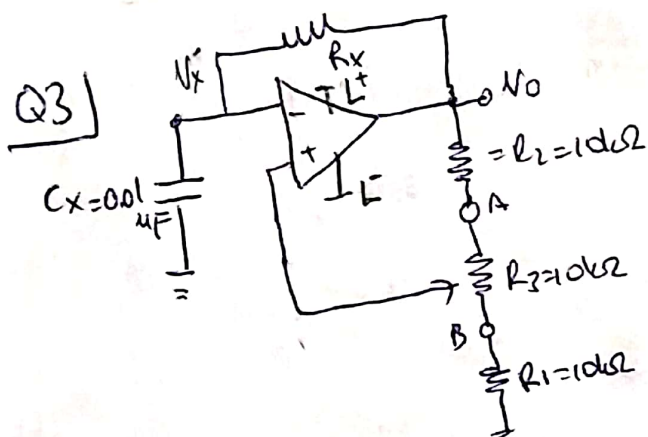 Q3
Vx
Rx
L+
Vo
-
+
L-
Cx=0.01
μF
=R2=10kΩ
A
R3=10kΩ
B
R1=10kΩ